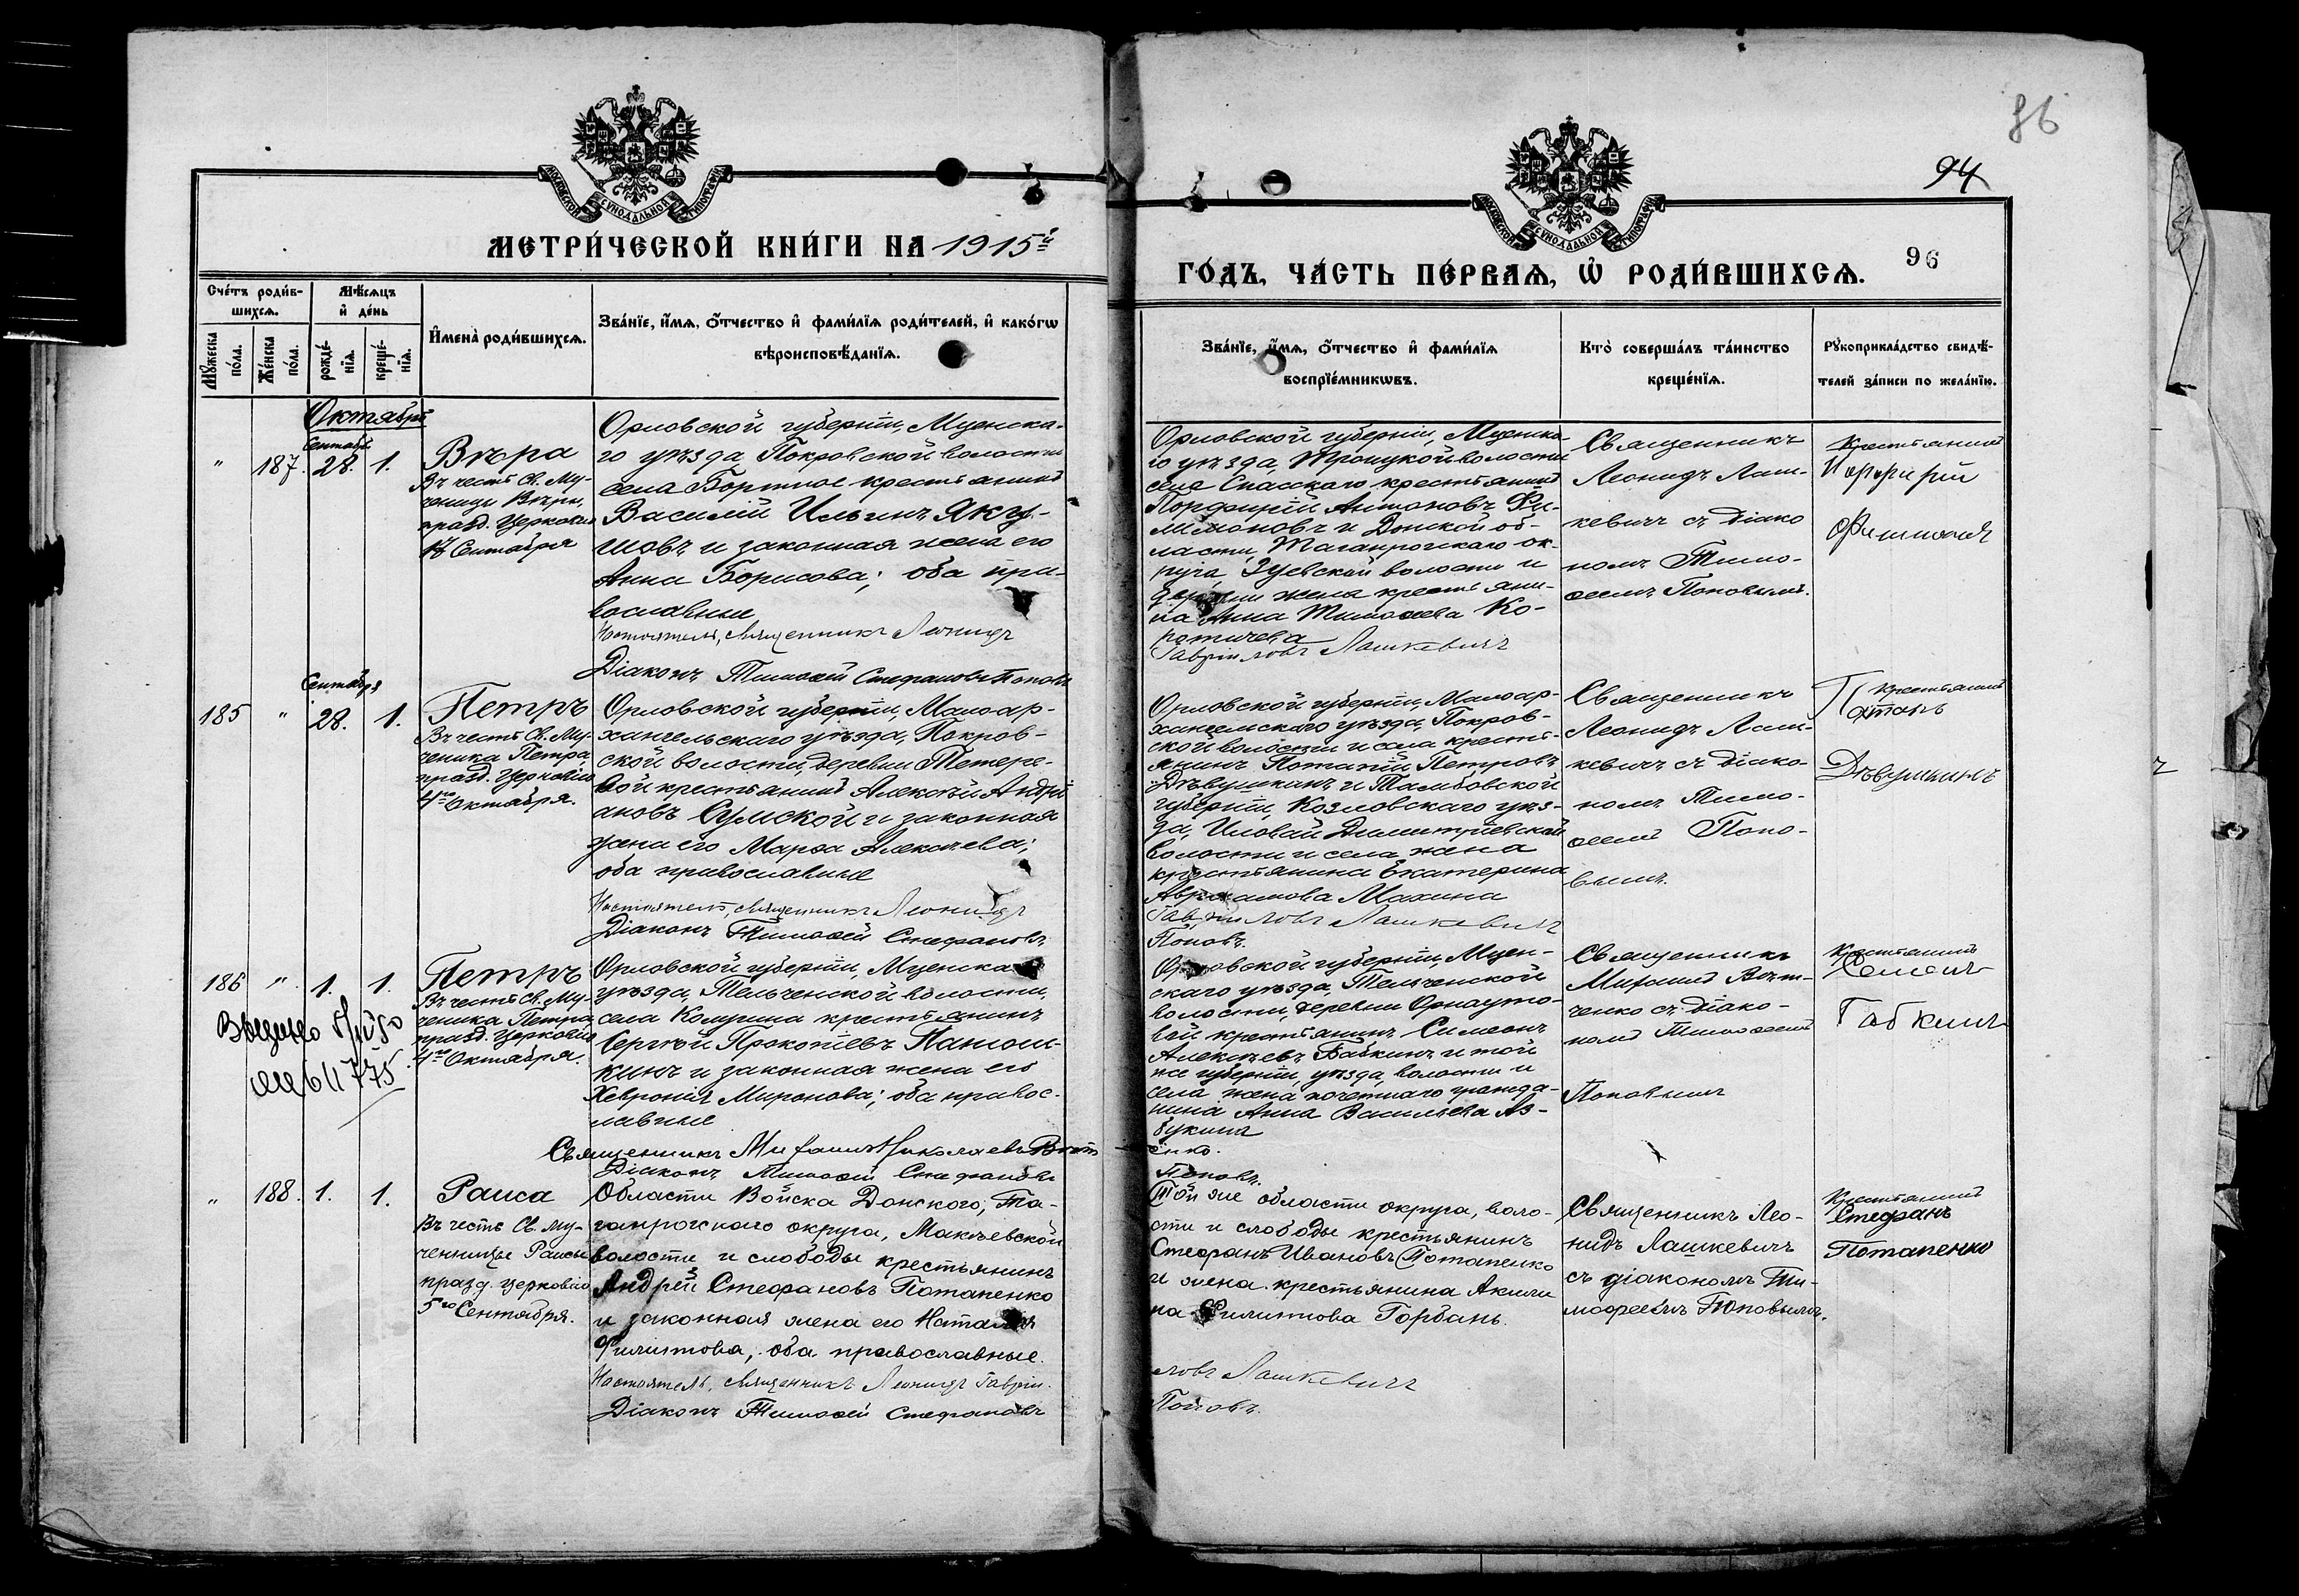 86
94
96
МОСКОВСКОЙ СѴНОДАЛЬНОЙ ТИПОГРАФІИ
МОСКОВСКОЙ СѴНОДАЛЬНОЙ ТИПОГРАФІИ
МЕТРИ́ЧЕСКОЙ КНИ́ГИ НА 1915й
ГО́ДЪ, ЧА́СТЬ ПЕ́РВАѦ, Ѡ҆ РОДИ́ВШИХСѦ.
Сче́тъ роди́в-
шихсѧ.
Мѣ́сѧцъ
и҆ де́нь
Мꙋ́жеска по́ла.
Же́нска по́ла.
рожде́-
нїѧ.
креще́-
нїѧ.
И҆мена̀ роди́вшихсѧ.
Зва́нїе, и҆́мѧ, ѻ҆́тчество и҆ фами́лїѧ роди́телей, и҆ како́гѡ
вѣроисповѣ́данїѧ.
Зва́нїе, и҆́мѧ, ѻ҆́тчество и҆ фами́лїѧ
воспрїе́мникѡвъ.
Кто̀ соверша́лъ та́инство
креще́нїѧ.
Рꙋкоприкла́дство свидѣ́-
телей за́писи по жела́нїю.
Октябрь
Сентябр.
" 187. 28. 1.
Вѣра
Въ честь Св. Му-
ченицы Вѣры,
празд. Церковію
17 Сентября
Орловской губерніи, Мценска-
го уѣзда Покровской волости
села Бортное крестьянинъ
Василій Ильинъ Яку-
шовъ и законная жена его
Анна Борисова; оба пра-
вославные
Настоятель, священникъ Леонидъ
Діаконъ Тимоѳей Стефановъ Поповъ
Орловской губерніи, Мценска-
го уѣзда, Троицкой волости
села Спасскаго крестьянинъ
Порфирій Антоновъ Фи-
лимоновъ и Донской об-
ласти, Таганрогскаго ок-
руга, Зуевской волости и
деревни жена крестьяни-
на Анна Тимоѳеева Ко-
ротичева
Гавріиловъ Лашкевичъ
Священникъ
Леонидъ Лаш-
кевичъ съ діако
номъ Тимо-
ѳеемъ Поповымъ.
Крестьянинъ
Порфирій
Сентября
185 " 28. 1.
Петръ
Въ честь Св. Му-
ченика Петра,
празд. Церковію
4го Октября.
Орловской губерніи, Малоар-
хангельскаго уѣзда, Покров-
ской волости, деревни Тетере-
вой крестьянинъ Алексѣй Андрі
ановъ Сумской и законная
жена его Марѳа Алексѣева;
оба православные
Настоятель, священникъ Леонидъ
Діаконъ Тимоѳей Стефановъ
Орловской губерніи, Малоар-
хангельскаго уѣзда, Покров-
ской волости и села кресть-
янинъ Потапій Петровъ
Дѣвушкинъ и Тамбовской
губерніи, Козловскаго уѣз-
да, Иловай Димитріевской
волости и села жена
крестьянина Екатерина
Авраамова Махина
Гавріиловъ Лашкевичъ
Поповъ.
Священникъ
Леонидъ Лаш-
кевичъ съ діако-
номъ Тимо-
ѳеемъ Попо-
вымъ.
Крестьянинъ
Дѣвушкинъ
186 " 1. 1.
Петръ
Въ честь Св. Му-
ченика Петра
празд. Церковію
4го Октября.
Орловской губерніи, Мценска
уѣзда, Тельченской волости,
села крестьянинъ
Сергѣй Прокопіевъ
кинъ и законная жена его
Хевронія Миронова; оба правос-
лавные
Священникъ Николаевъ
Діаконъ Тимоѳей Стефановъ
Орловской губерніи, Мцен-
скаго уѣзда, Тельченской
волости, деревни
вой крестьянинъ Симеонъ
Алексѣевъ Бабкинъ и той
же губерніи, уѣзда, волости и
села жена почетнаго гражда-
нина Анна Васильева Аз-
букина
енко.
Поповъ.
Священникъ
ченко съ діако-
номъ Тимоѳеемъ
Поповымъ
Крестьянинъ
Семенъ
" 188. 1. 1.
Раиса
Въ честь Св. му-
ченницы Раисы
празд. церковію
5го Сентября.
Области Войска Донского, Та-
ганрогскаго округа, Макѣевской
волости и слободы крестьянинъ
Андрей Стефановъ Потапенко
и законная жена его Наталія
Филиппова, оба православные.
Настоятель, священникъ Леонидъ Гавріи-
Діаконъ Тимоѳей Стефановъ
Той же области округа, воло-
сти и слободы крестьянинъ
Стефанъ Ивановъ Потапенко
и жена крестьянина Акили
на Филиппова Горбань.
ловъ Лашкевичъ
Поповъ.
Священникъ Лео-
нидъ Лашкевичъ
съ діакономъ Ти-
мофеемъ Поповымъ.
Крестьянинъ
Стефанъ
Потапенко